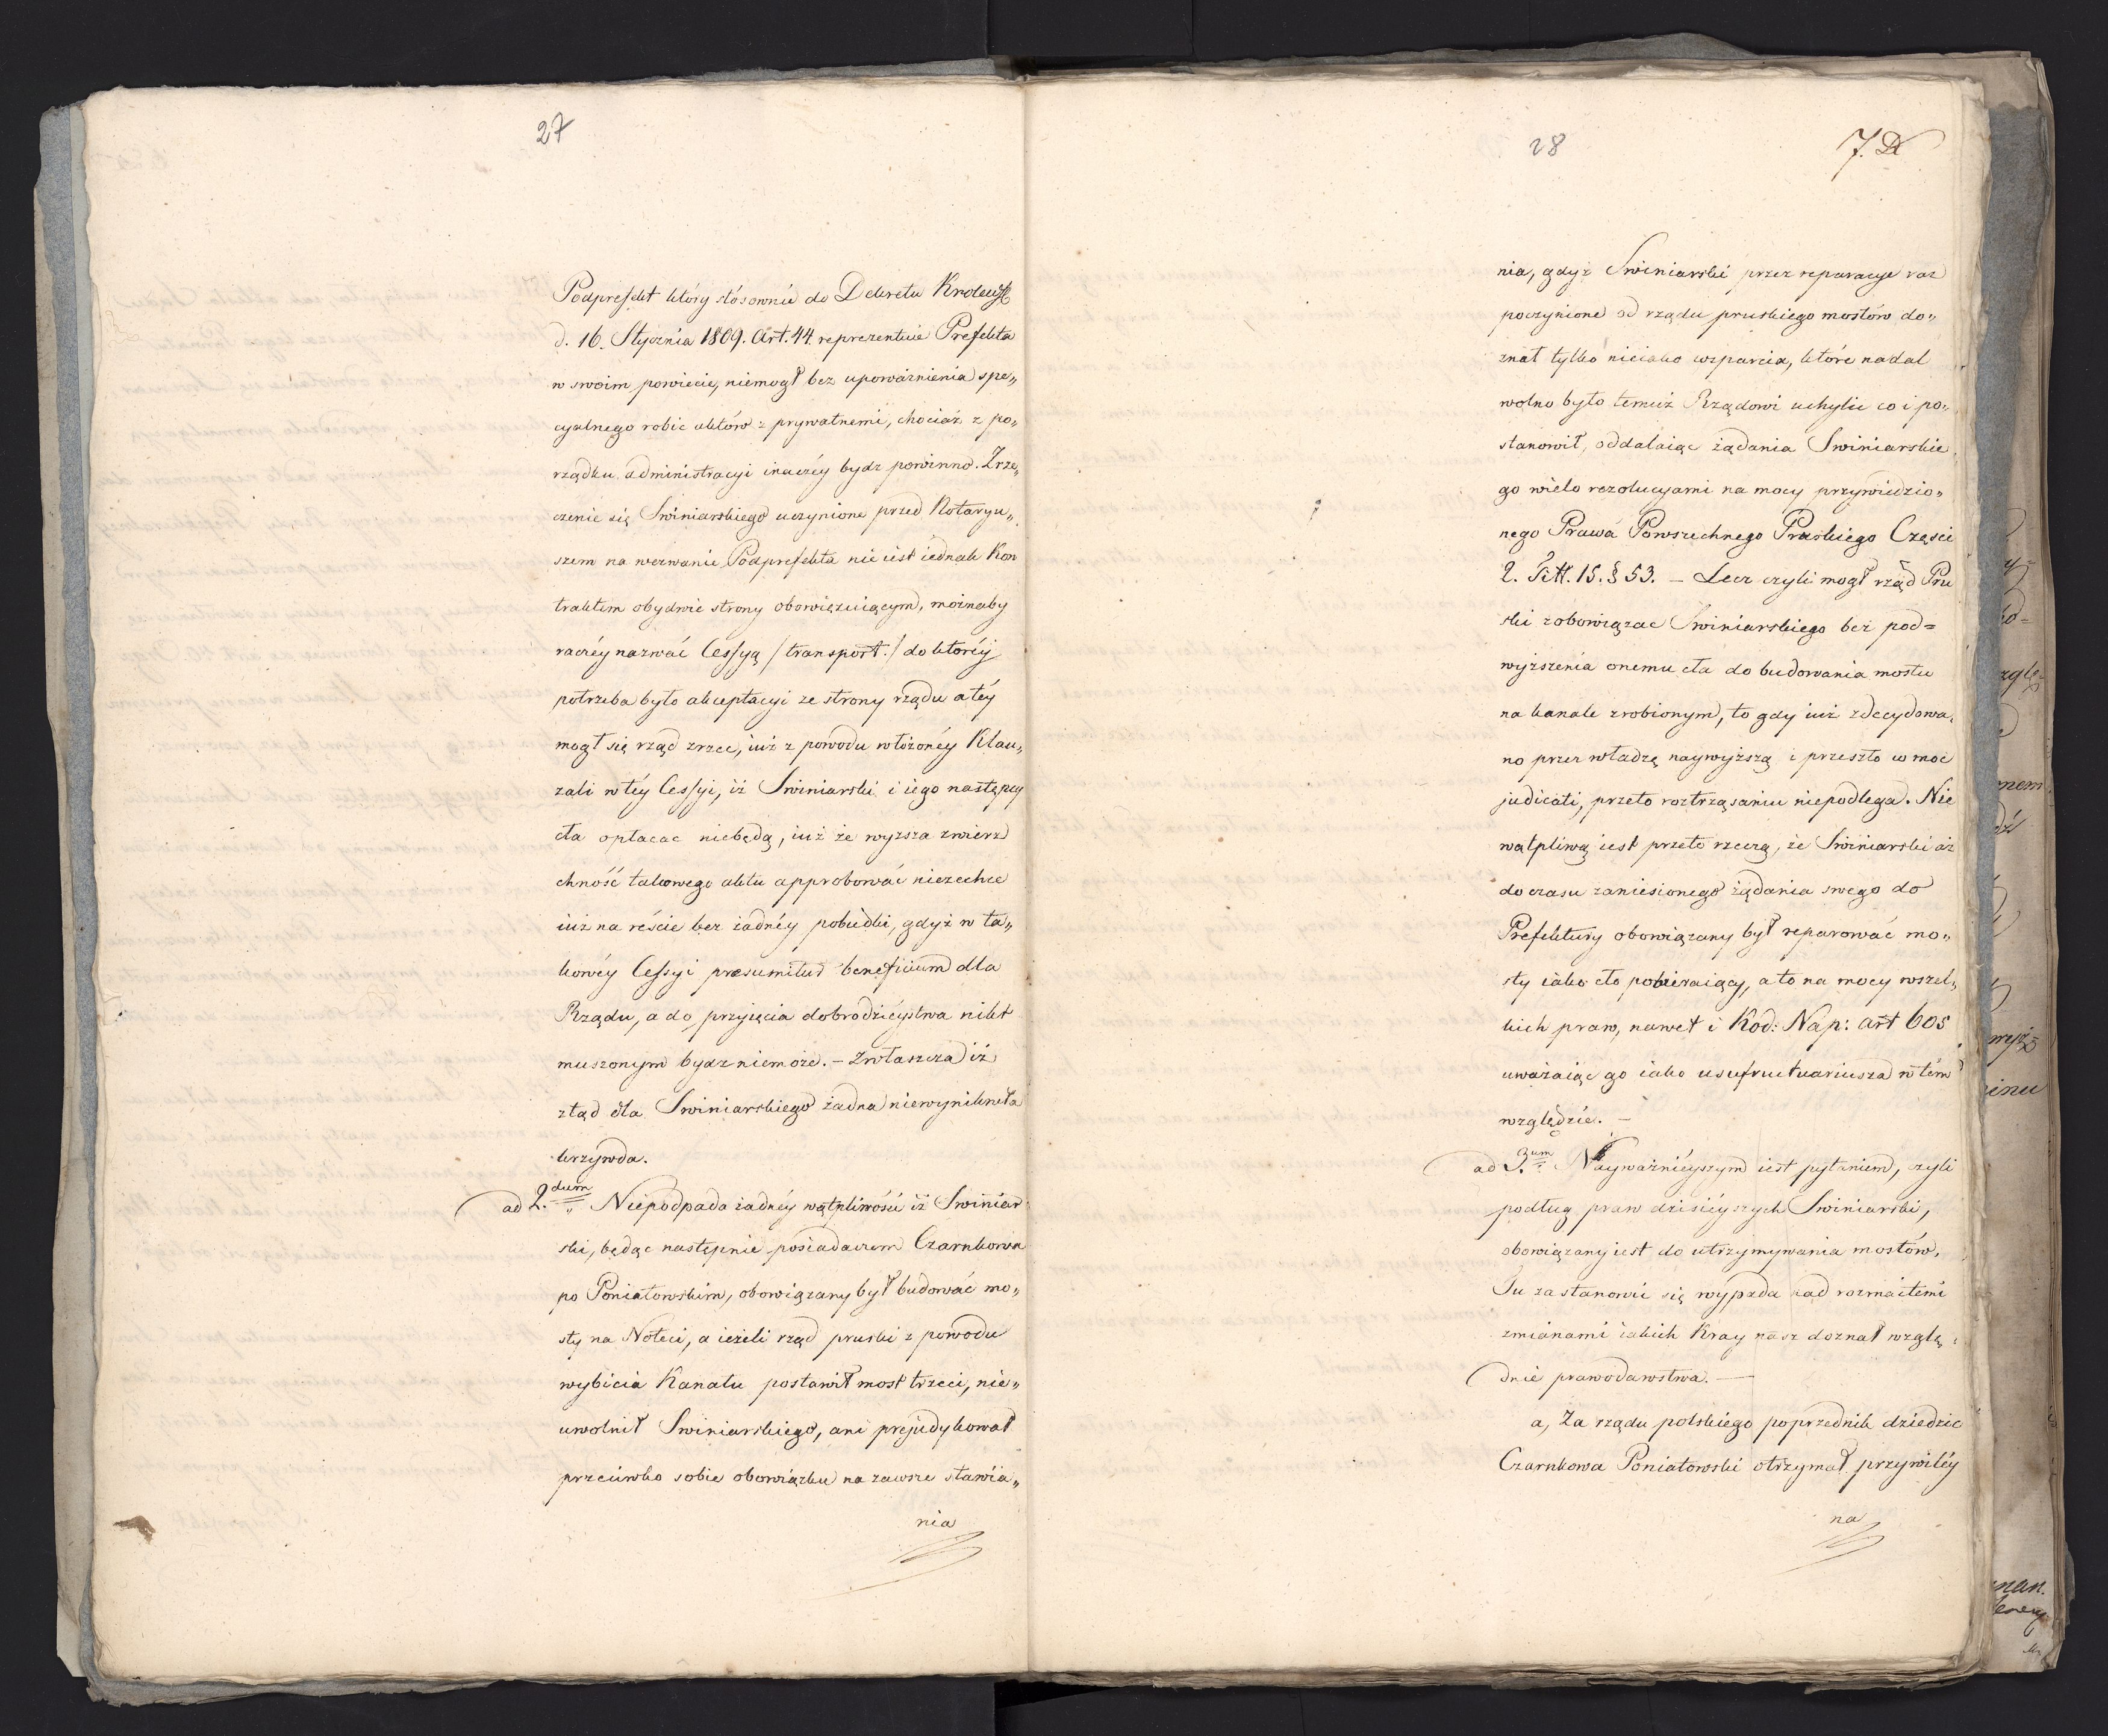 27
Podprefekt który stósownie do Dekretu Królewsk
d. 16. Stycznia 1809. Art. 44. reprezentuie Prefekta
w swoim powiecie, niemogł bez upoważnienia spe„
cyalnego robić aktów z prywatnemi, chociaż z po„
rządku administracyi inaczéy bydz powinno. Zrze„
czenie się Swiniarskiego uczynione przed Notaryu„
szem na wezwanie Podprefekta nie iest iednak Kon
traktem obydwie strony obowięzuiącym, możnaby
raczéy nazwać Cessyą /transport./ do któréy
potrzeba było akceptacyi ze strony rządu a téy
mogł się rząd zrzec, iuż z powodu włożonéy Klau„
zuli w téy Cessyi, iż Swiniarski i iego następcy
cła opłacac niebędą, iuż że wyższa zwierz
chność takowego aktu approbować niezechce
iuż na reście bez żadnéy pobudki, gdyż w ta„
kowéy Cessyi præsumitur beneficium dla
Rządu, a do przyięcia dobrodziéystwa nikt
muszonym bydz niemoże. – Zwłaszcza iż
ztąd dla Swiniarskiego żadna niewyniknęła
krzywda.
ad 2.dum „ Niepodpada żadnéy wątpliwości iż Swiniar
ski, będąc następnie posiadaczem Czarnkowa
po Poniatowskim, obowiązany był budować mo„
sty na Noteci, a ieżeli rząd pruski z powodu
wybicia Kanału postawił most trzeci, nie„
uwolnił Swiniarskiego, ani prejudykował
przeciwko sobie obowiązku na zawsze stawia„
nia
28
7. D
nia, gdyż Swiniarski przez reparacye raz
poczynione od rządu pruskiego mostów do„
znał tylko nieiako wsparcia, które nadal
wolno było temuż Rządowi uchylić co i po„
stanowił, oddalaiąc żądania Swiniarskie
go wielo rezolucyami na mocy przywiedzio„
nego Prawa Powszechnego Pruskiego Częsci
2. Titt. 15. § 53. – Lecz czyli mogł rząd Pru
ski zobowiązac Swiniarskiego bez pod=
wyższenia onemu cła do budowania mostu
na kanale zrobionym, to gdy iuż zdecydowa„
no przez władzę naywyższą i przeszło w moc
judicati, przeto roztrząsaniu niepodlega. Nie
wątpliwą iest przeto rzeczą, że Swiniarski aż
do czasu zaniesionego żądania swego do
Prefektury obowiązany był reparować mo„
sty iako cło pobieraiący, a to na mocy wszel„
kich praw, nawet i Kod: Nap: art 605
uważaiąc go iako usufructuariusza w tém
względzie. –
ad 3.um „ Nayważnieyszym iest pytaniem, czyli
podług praw dzisiéyszych Swiniarski,
obowiązany iest do utrzymywania mostów,
Tu zastanowić się wypada nad rozmaitemi
zmianami iakich Kray nasz doznał wzglę„
dnie prawodawstwa. —
a, Za rządu polskiego poprzednik dziedzic
Czarnkowa Poniatowski otrzymał przywiléy
na